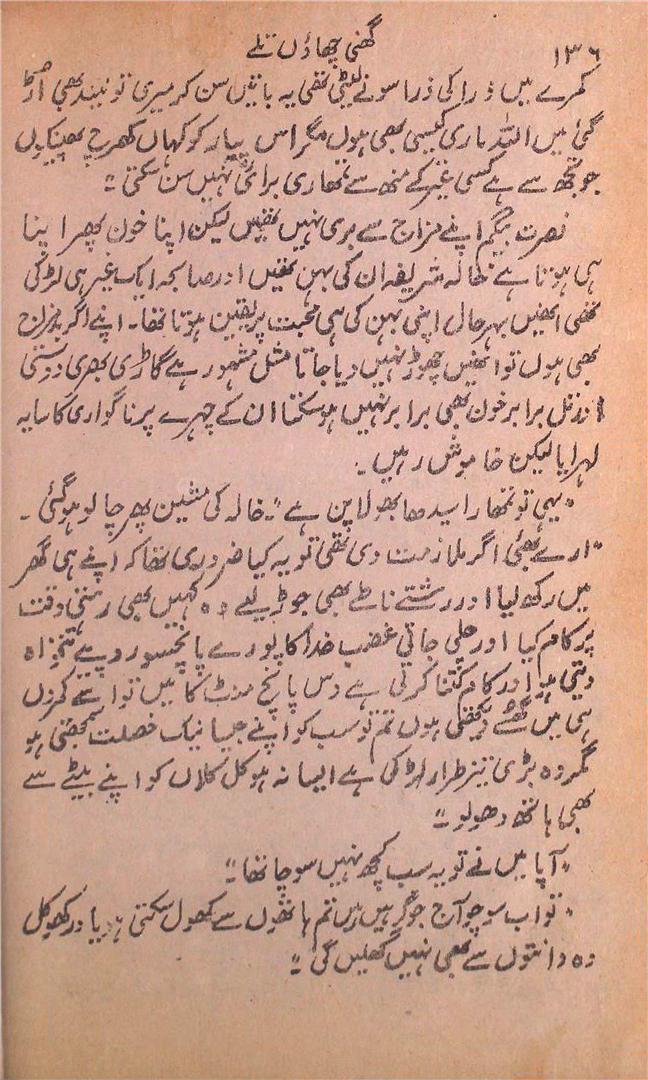 ۱۳۶
گھنی چھاؤں تلے
کمرے میں ذرا کی ذرا سونے لیٹی تھی یہ باتیں سن کر میری تو نیند بھی اڑ
گئی میں اللہ ماری کیسی بھی ہوں مگر اس پیار کو کہاں کھرچ پھینکوں
جو تجھ سے ہے کسی غیر کے منھ سے تمھاری برائی نہیں سن سکتی"۔
نصرت بیگم اپنے مزاج سے بری نہیں تھیں لیکن اپنا خون پھر اپنا
ہی ہوتا ہے خالہ شریفہ ان کی بہن تھیں اور صابحہ ایک غیر ہی لڑکی
تھی انھیں بہرحال اپنی بہن کی ہی محبت پر یقین ہوتا تھا۔ اپنے اگر بدمزاج
بھی ہوں تو انھیں چھوڑ نہیں دیا جاتا مثل مشہور ہے گاڑی بھری دوستی
اور تل برابر خون بھی برابر نہیں ہو سکتا ان کے چہرے پر ناگواری کا سایہ
لہرایا لیکن خاموش رہیں۔
"یہی تو تمھارا سیدھا بھولا پن ہے"۔ خالہ کی مشین پھر چالو ہو گئی۔
"ارے بھئی اگر ملازمت دی تھی تو یہ کیا ضروری تھا کہ اپنے ہی گھر
میں رکھ لیا اور رشتے ناطے بھی جوڑ لیے وہ کہیں بھی رہتی وقت
پر کام کیا اور چلی جاتی غضب خدا کا پورے پانچسو روپیے تنخواہ
دیتی ہو اور کام کتنا کرتی ہے دس پانچ منٹ کا میں تو اسے کمروں
ہی میں گھسے دیکھتی ہوں تم تو سب کو اپنے جیسا نیک خصلت سمجھتی ہو
مگر وہ بڑی تیز طرار لڑکی ہے ایسا نہ ہو کل کلاں کو اپنے بیٹے سے
بھی ہاتھ دھولو"۔
"آپا میں نے تو یہ سب کچھ نہیں سوچا تھا"۔
"تو اب سوچو آج جو گرہیں تم ہاتھوں سے کھول سکتی ہو یاد رکھو کل
وہ دانتوں سے بھی نہیں کھلیں گی"۔